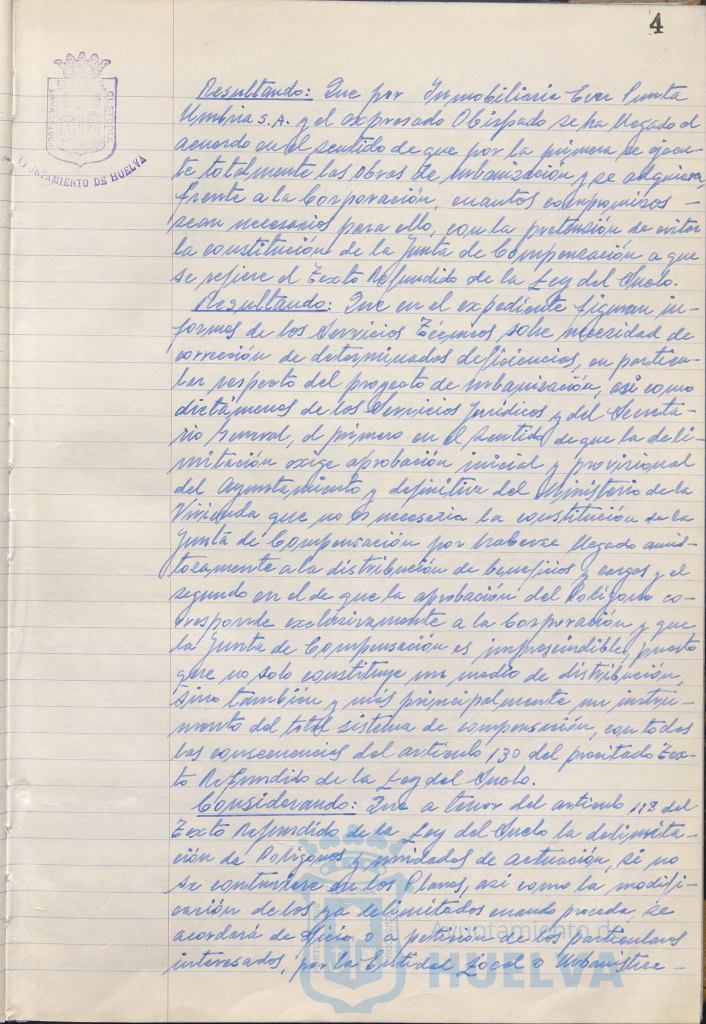 4
AYUNTAMIENTO DE HUELVA
Resultando: Que por Inmobiliaria Ever Punta
Umbria S.A. y el expresado Obispado se ha llegado al
acuerdo en el sentido de que por la primera se ejecu-
te totalmente las obras de urbanización y se adquiera,
frente a la Corporación, cuantos compromisos
sean necesarios para ello, con la pretensión de evitar
la constitución de la Junta de Compensación a que
se refiere el Texto Refundido de la Ley del Suelo.
Resultando: Que en el expediente figuran in-
formes de los Servicios Técnicos sobre necesidad de
corrección de determinadas deficiencias, en particu-
lar respecto del proyecto de urbanización, así como
dictámenes de los Servicios Jurídicos y del Secreta-
rio General, el primero en el sentido de que la deli-
mitación exige aprobación inicial y provisional
del Ayuntamiento y definitiva del Ministerio de la
Vivienda que no es necesaria la constitución de la
Junta de Compensación por haberse llegado amis-
tosamente a la distribución de beneficios y cargas y el
segundo en el de que la aprobación del Polígono co-
rresponde exclusivamente a la Corporación y que
la Junta de Compensación es imprescindible, puesto
que no solo constituye un medio de distribución,
sino también y más principalmente un instru-
mento del total sistema de compensación, con todas
las consecuencias del artículo 130 del precitado Tex-
to Refundido de la Ley del Suelo.
Considerando: Que a tenor del artículo 118 del
Texto Refundido de la Ley del Suelo la delimita-
ción de Polígonos y unidades de actuación, si no
se contuviere en los Planes, así como la modifi-
cación de los ya delimitados cuando proceda, se
acordará de oficio o a petición de los particulares
interesados, por la Entidad Local o Urbanística
Ayuntamiento de
HUELVA